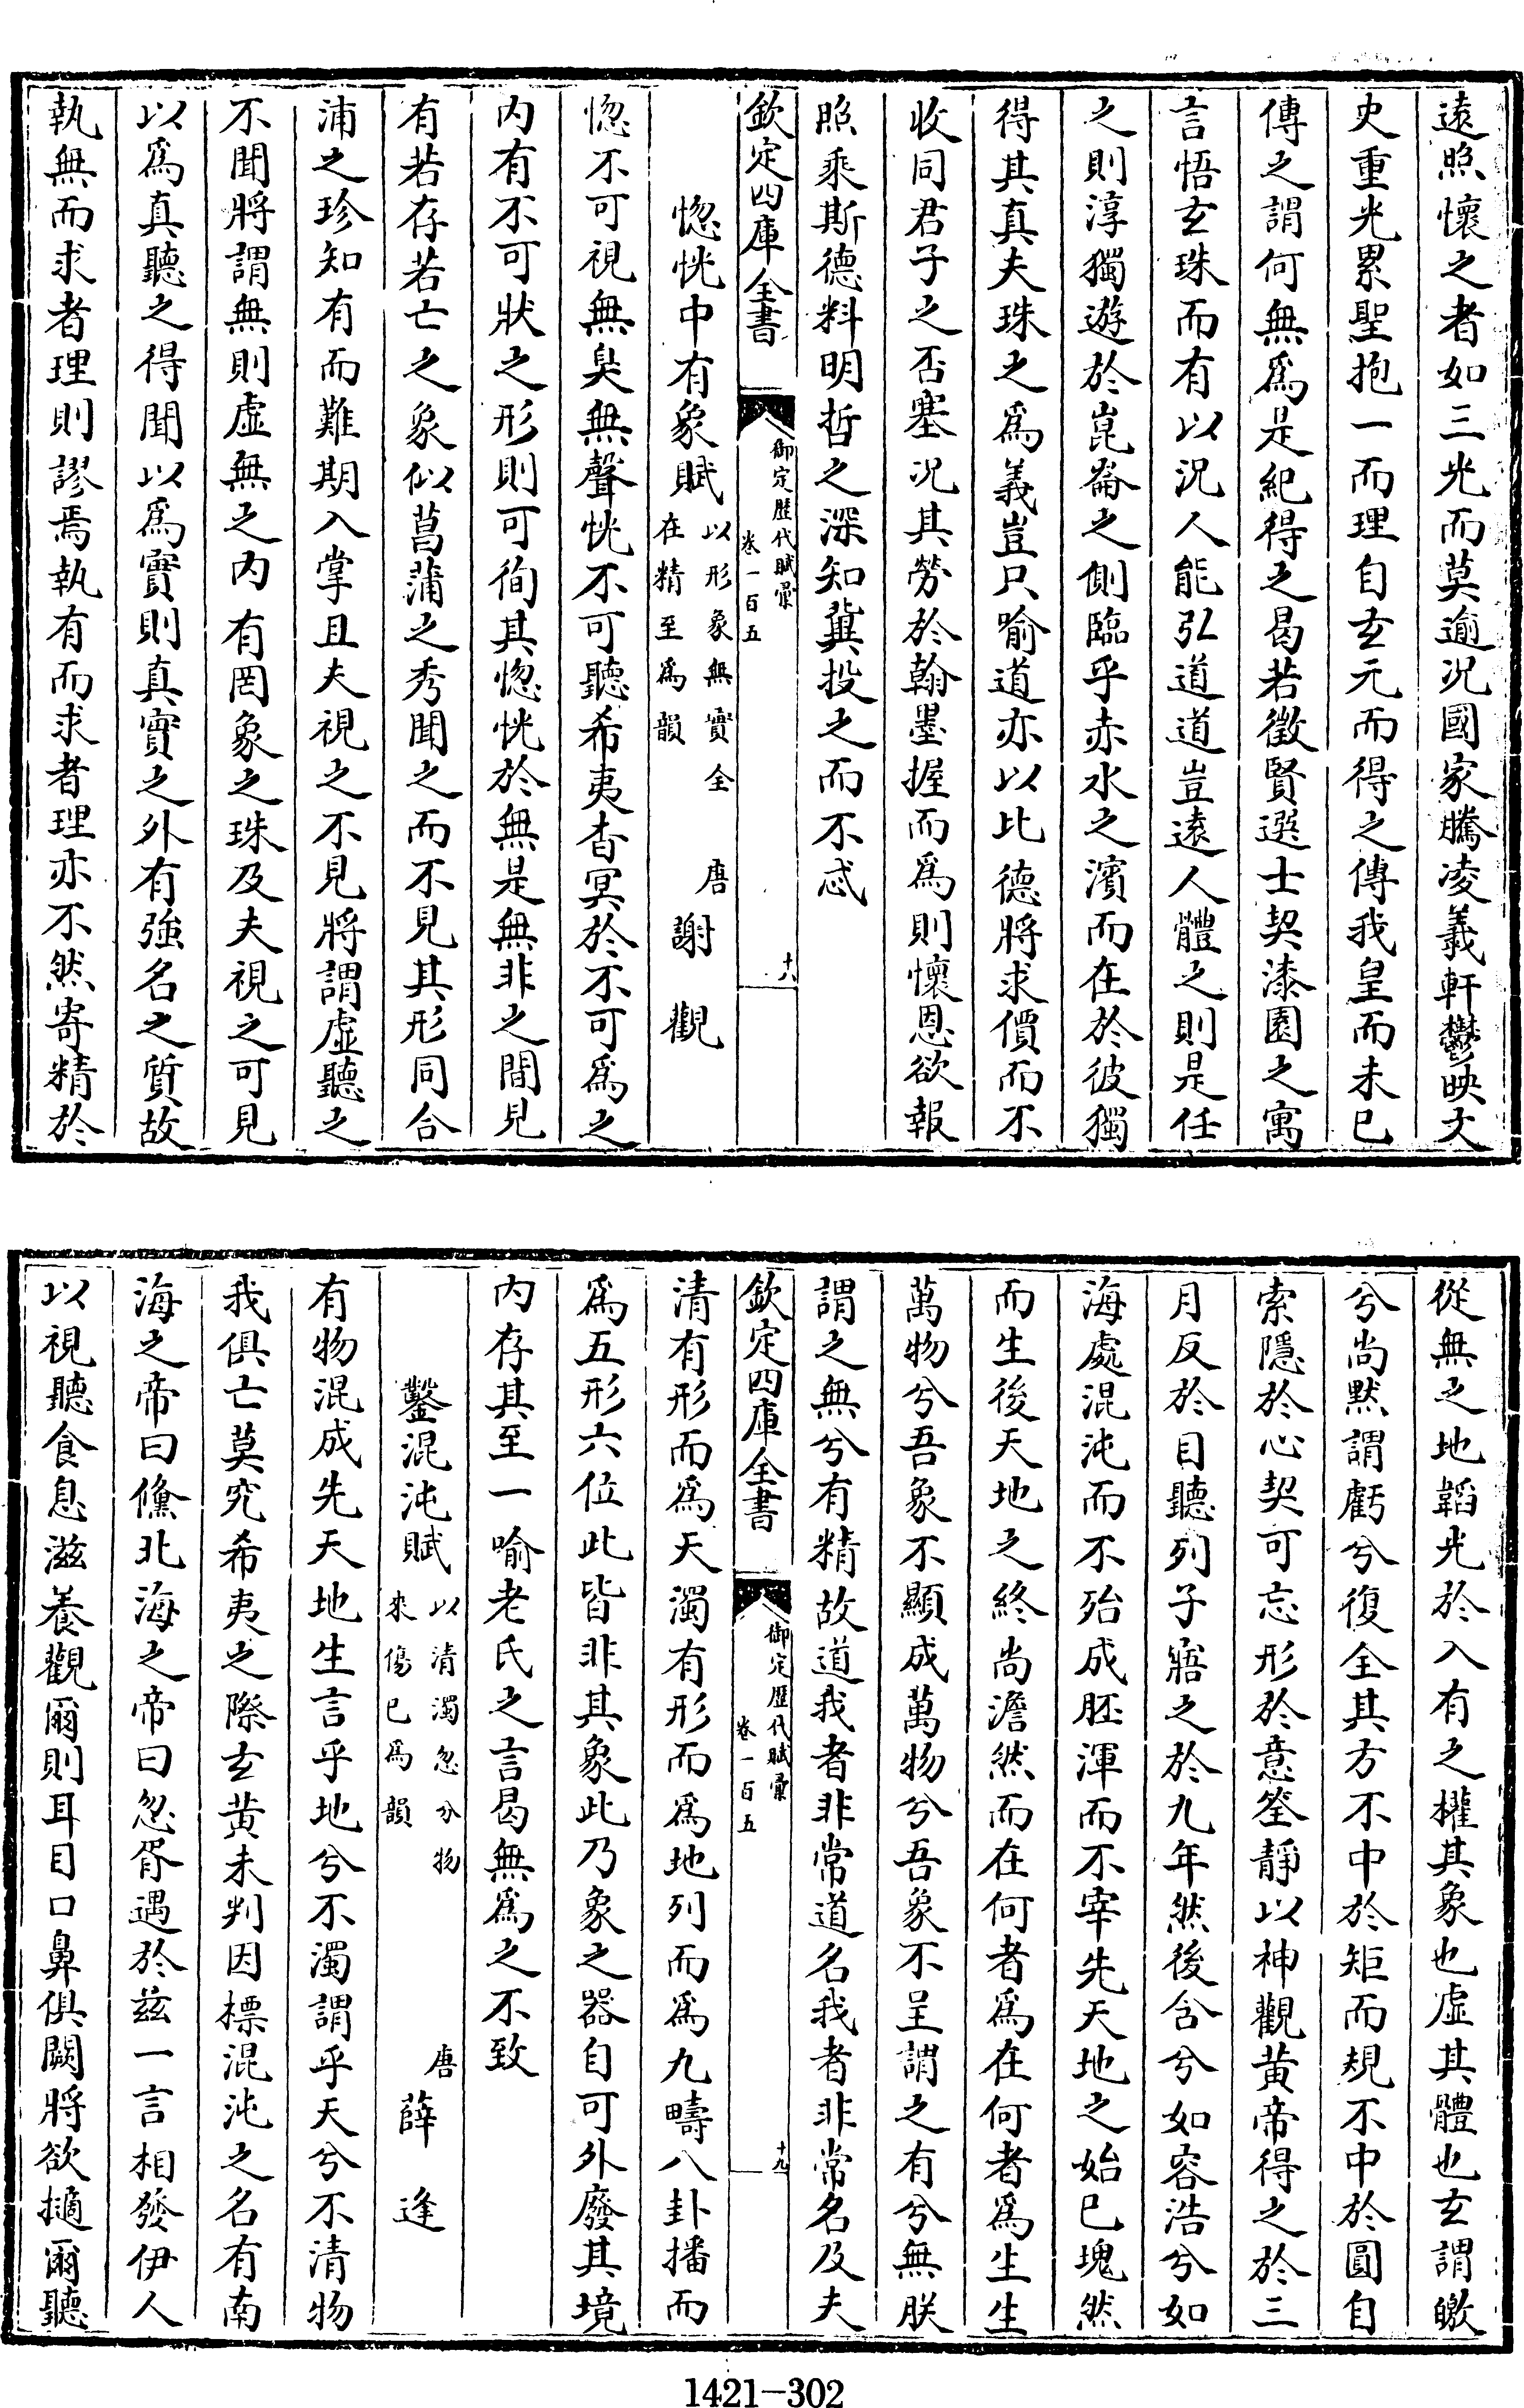 遠照懷之者如三光而莫逾况國家騰凌羲軒鬱映文
史重光累聖抱一而理自玄元而得之傳我皇而未已
傳之謂何無爲是紀得之曷若徵賢選士契漆園之寓
言悟玄珠而有以況人能弘道道豈遠人體之則是任
之則淳獨遊於崑崙之側臨乎赤水之濱而在於彼獨
得其真夫珠之爲義豈只喻道亦以比德將求價而不
收同君子之否塞况其勞於翰墨握而爲則懷恩欲報
照乘斯德料明哲之深知冀投之而不忒
欽定四庫全書
御定歷代賦彙
卷一百五
十八
惚恍中有象賦
以形象無實全
在精至爲韻
唐
謝觀
惚不可視無臭無聲恍不可聽希夷杳冥於不可爲之
内有不可狀之形則可徇其惚恍於無是無非之間見
有若存若亡之象似菖蒲之秀聞之而不見其形同合
浦之珍知有而難期入掌且夫視之不見將謂虛聽之
不聞將謂無則虛無之内有罔象之珠及夫視之可見
以爲真聽之得聞以爲實則真實之外有強名之質故
執無而求者理則謬焉執有而求者理亦不然寄精於
從無之地韜光於入有之權其象也虛其體也玄謂皦
兮尚默謂虧兮復全其方不中於矩而規不中於圓自
索隱於心契可忘形於意筌靜以神觀黄帝得之於三
月反於目聽列子寤之於九年然後含兮如容浩兮如
海處混沌而不殆成胚渾而不宰先天地之始已塊然
而生後天地之終尚澹然而在何者爲在何者爲生生
萬物兮吾象不顯成萬物兮吾象不呈謂之有兮無朕
謂之無兮有精故道我者非常道名我者非常名及夫
欽定四庫全書
御定歷代賦彙
卷一百五
十九
清有形而爲天濁有形而爲地列而爲九疇八卦播而
爲五形六位此皆非其象此乃象之器自可外廢其境
内存其至一喻老氏之言曷無爲之不致
鑿混沌賦
以清濁忽分物
來傷已爲韻
唐
薛逢
有物混成先天地生言乎地兮不濁謂乎天兮不清物
我俱亡莫究希夷之際玄黄未判因標混沌之名有南
海之帝曰儵北海之帝曰忽胥遇於茲一言相發伊人
以視聽食息滋養觀爾則耳目口鼻俱闕將欲擿爾聽
1421-302